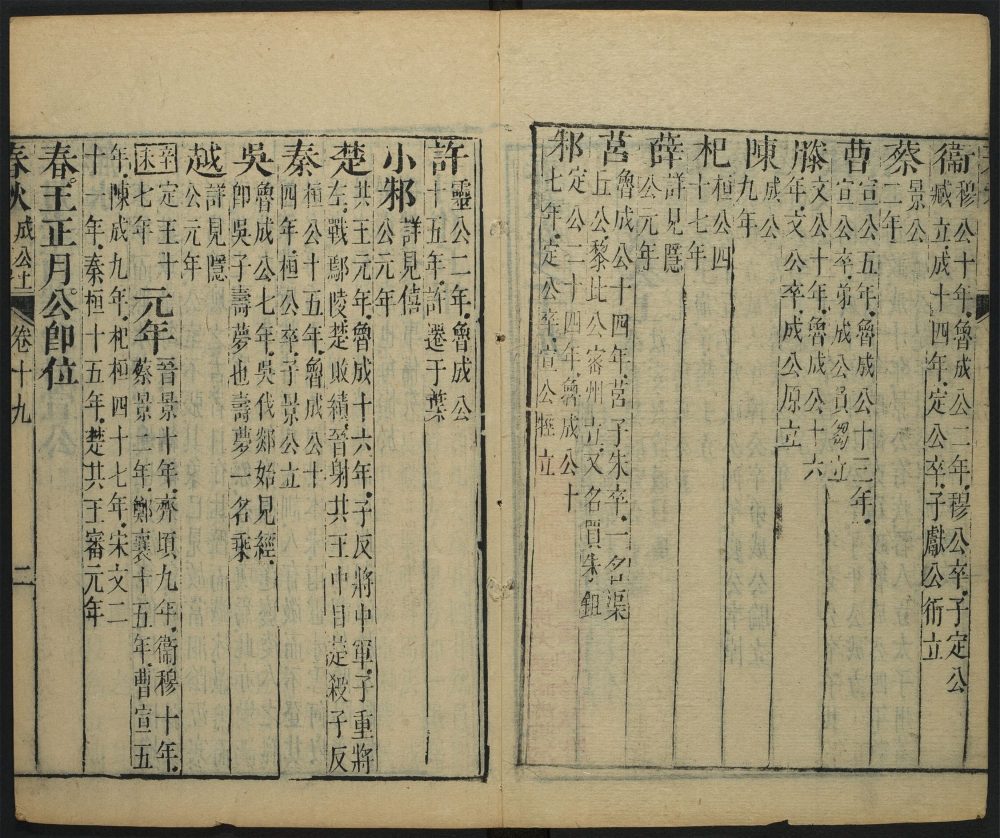 衞 穆公十年。魯成公二年。穆公卒。子定公
臧立。成十四年。定公卒。子獻公衎立
蔡 景公
二年
曹 宣公五年。魯成公十三年。
宣公卒。弟成公負芻立
滕 文公十年。魯成公十六
年。文公卒。成公原立
陳 成公
九年
杞 桓公四
十七年
薛 詳見隱
公元年
莒 魯成公十四年。莒子朱卒。一名渠
丘公。黎比公密州立。又名買朱鉏
邾 定公二十四年。魯成公十
七年。定公卒。宣公牼立
許 靈公二年。魯成公
十五年。許遷于葉
小邾 詳見僖
公元年
楚 共王元年。魯成十六年。子反將中軍。子重將
左。戰鄢陵。楚敗績。晉射共王中目。是殺子反
秦 桓公十五年。魯成公十
四年。桓公卒。子景公立
吳 魯成公七年。吳伐郯始見經。
即吳子壽夢也。壽夢一名乘
越 詳見隱
公元年
辛未 定王十
七年
元年 晉景十年。齊頃九年。衞穆十年。
蔡景二年。鄭襄十五年。曹宣五
年。陳成九年。杞桓四十七年。宋文二
十一年。秦桓十五年。楚共王審元年
春。王正月。公即位
春秋 成公上 卷十九 二